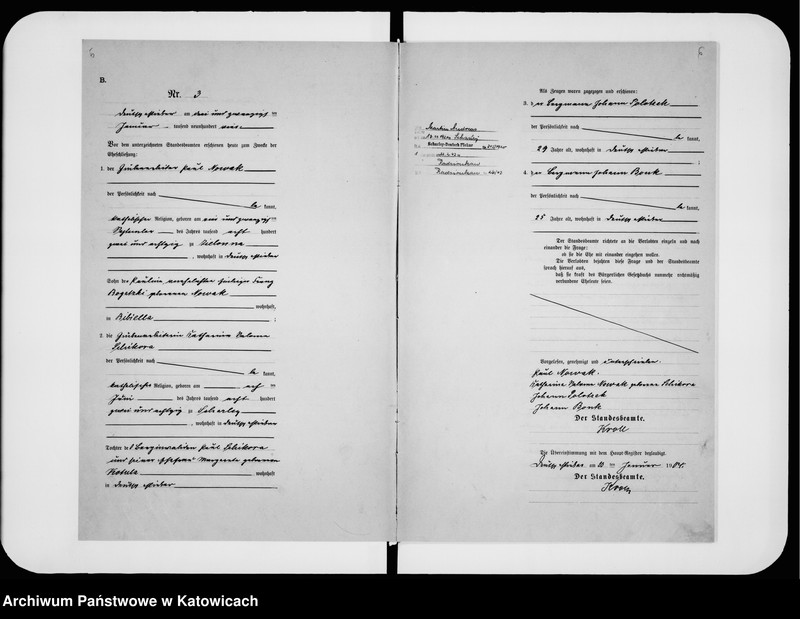 6
B.
Nr. 3
Deutsch Piekar am drei und zwanzigsten
Januar tausend neunhundert vier
Vor dem unterzeichneten Standesbeamten erschienen heute zum Zweck der
Eheschließung:
1. der Grubenarbeiter Paul Nowak
der Persönlichkeit nach
be kannt,
katholischer Religion, geboren am ein und zwanzigsten
September des Jahres tausend acht hundert
zwei und achtzig zu
, wohnhaft in Deutsch Piekar
Sohn der Paulina verehelichten Franz
Rogetzki geborene Nowak
wohnhaft,
in Bibiella ;
2. die Grubenarbeiterin Catharina Salome
Schikora
der Persönlichkeit nach
be kannt,
katholischer Religion, geboren am acht ten
Juni des Jahres tausend acht hundert
zwei und achtzig zu Scharley
, wohnhaft in Deutsch Piekar
Tochter des Berginvaliden Paul Schikora
und seiner Ehefrau Margarete geborenen
wohnhaft
in Deutsch Piekar
6
Scharley-Deutsch Piekar
Radzionkau
Radzionkau
Als Zeugen waren zugezogen und erschienen:
3. der Bergmann Johann Polotzek
der Persönlichkeit nach
be kannt,
29 Jahre alt, wohnhaft in Deutsch Piekar
;
4. der Bergmann Johann Bonk
der Persönlichkeit nach
be kannt,
25 Jahre alt, wohnhaft in Deutsch Piekar
Der Standesbeamte richtete an die Verlobten einzeln und nach
einander die Frage:
ob sie die Ehe mit einander eingehen wollen.
Die Verlobten bejahten diese Frage und der Standesbeamte
sprach hierauf aus,
daß sie kraft des Bürgerlichen Gesetzbuchs nunmehr rechtmäßig
verbundene Eheleute seien.
Vorgelesen, genehmigt und unterschrieben.
Paul Nowak.
Katharina Salome Nowak geborene Schikora
Johann Polotzek
Johann Bonk
Der Standesbeamte.
Kroll
Die Übereinstimmung mit dem Haupt-Register beglaubigt.
Deutsch Piekar, am ten Januar 1904.
Der Standesbeamte.
Kroll
Archiwum Państwowe w Katowicach